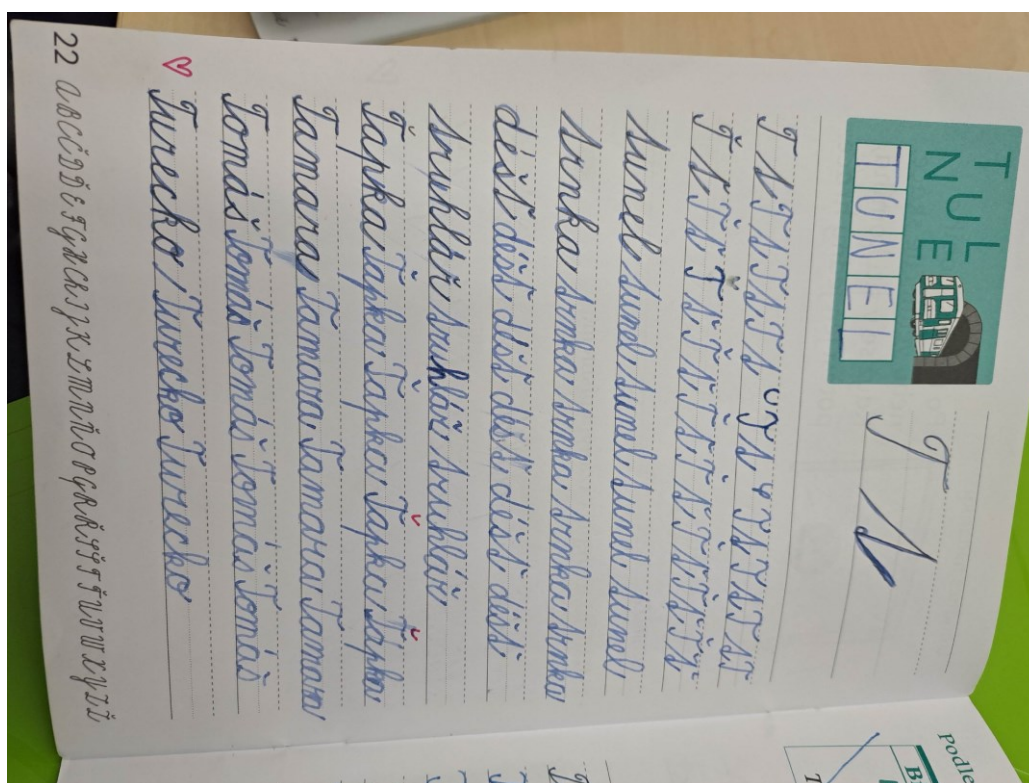 TUL
NE
TUNEL
T t
T t T t T t T t T t T t T t T t T
Ť ť Ť ť Ť ť Ť ť Ť ť Ť ť Ť ť Ť ť
tunel tunel tunel tunel tunel
trnka trnka trnka trnka trnka
déšť déšť déšť déšť déšť déšť
truhlář truhlář truhlář
Ťapka Ťapka Ťapka Ťapka Ťapka
Tamara Tamara Tamara Tamara
Tomáš Tomáš Tomáš Tomáš Tomáš
Turecko Turecko Turecko
22 A B C Č D Ď E F G H CH I J K L M N Ň O P Q R Ř S Š T Ť U V W X Y Z Ž
Podle